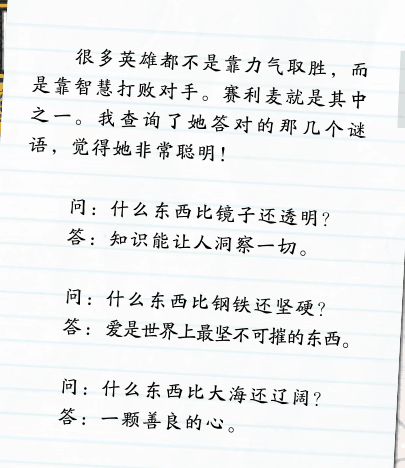 很多英雄都不是靠力气取胜，而
是靠智慧打败对手。赛利麦就是其中
之一。我查询了她答对的那几个谜
语，觉得她非常聪明！
问：什么东西比镜子还透明？
答：知识能让人洞察一切。
问：什么东西比钢铁还坚硬？
答：爱是世界上最坚不可摧的东西。
问：什么东西比大海还辽阔？
答：一颗善良的心。